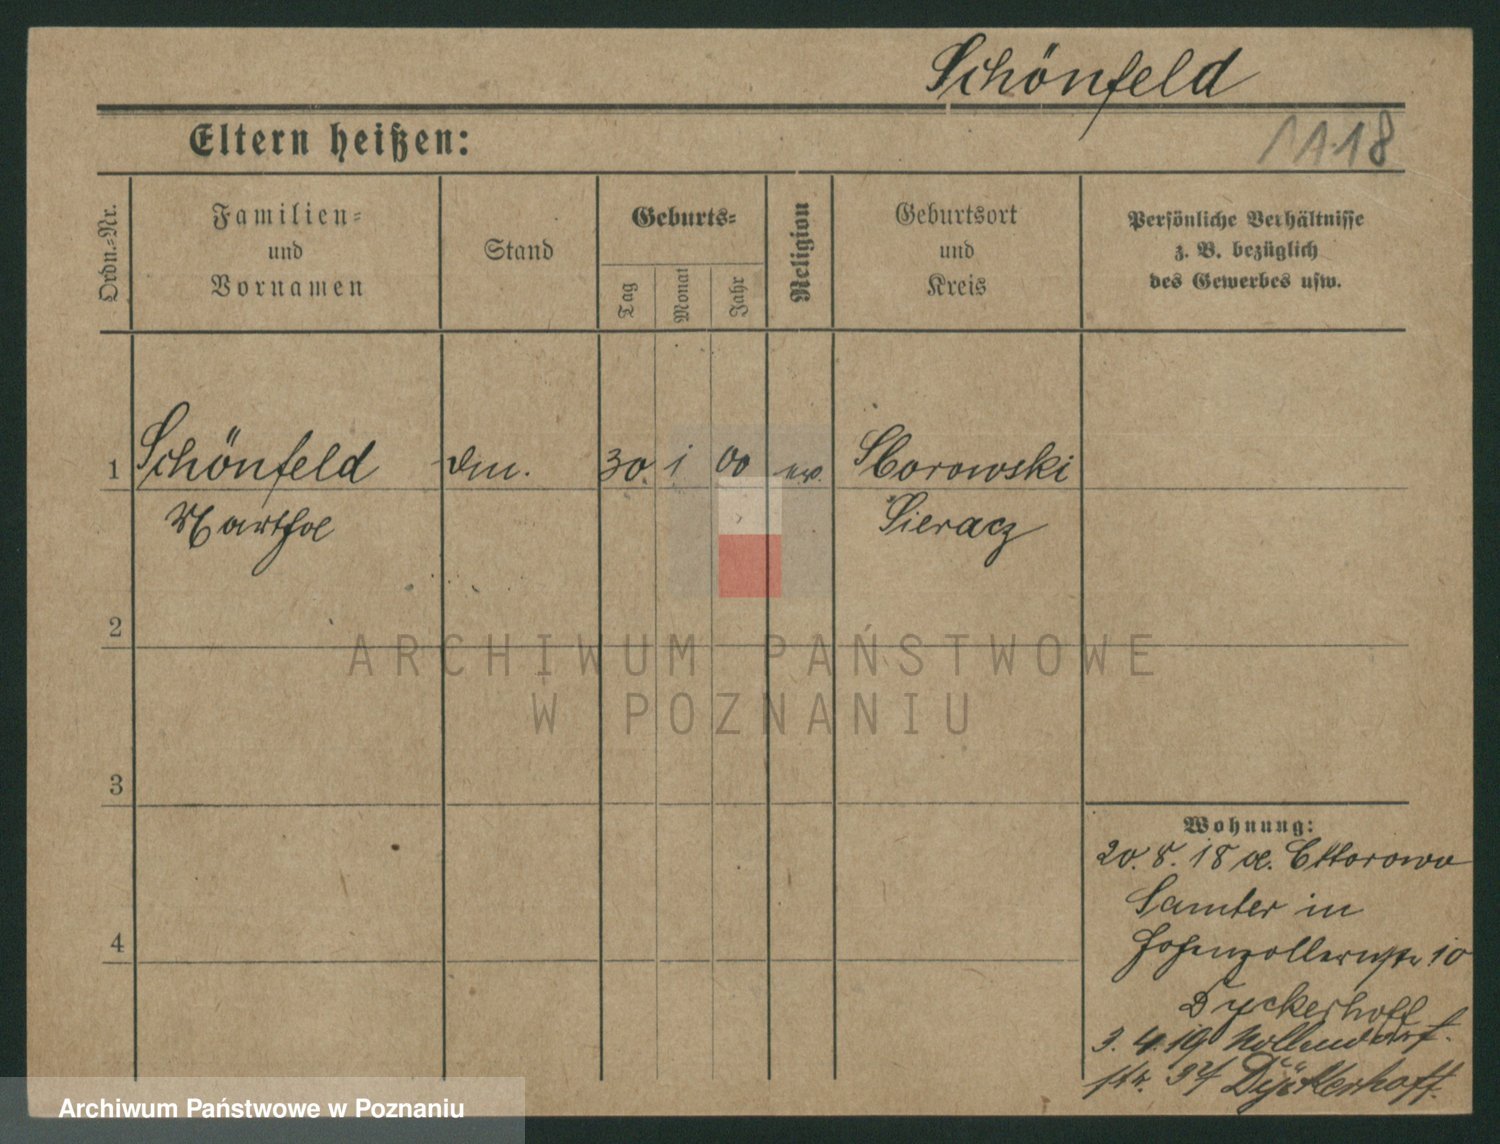 Schönfeld
Eltern heißen:
1118
Ordn.-Nr.
Familien-
und
Vornamen
Stand
Geburts-
Tag
Monat
Jahr
Religion
Geburtsort
und
Kreis
Persönliche Verhältnisse
z. B. bezüglich
des Gewerbes usw.
1
Schönfeld
30. 1 00 ev.
Martha
Sieracz
2
ARCHIWUM PAŃSTWOWE
W POZNANIU
3
Wohnung:
20. 8. 18 a.
Samter in
4
Hohenzollernstr 10
Dyckerhoff
3. 4. 19 Nollendorf-
str. 34 Dyckerhoff.
Archiwum Państwowe w Poznaniu